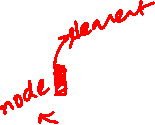 element
node